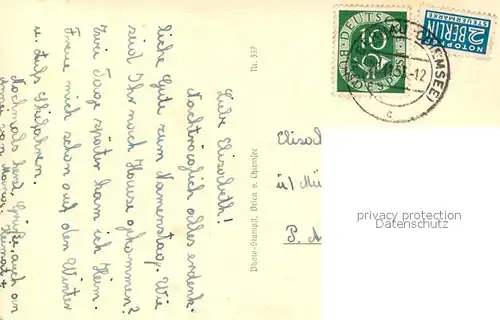 Liebe Elisabeth!
Nachträglich alles erdenk-
liche Gute zum Namenstag. Wie
seid Ihr nach Hause gekommen?
Zwei Tage später kam ich Heim.
Freue mich schon auf den Winter
u. aufs Skifahren.
Nochmals herzl. Grüße, auch an
von
Nr. 537
Photo-Stampfl, Prien a. Chiemsee
DEUTSCHE
BUNDESPOST
10
NOTOPFER
2 BERLIN
STEUERMARKE
EMSEE)
-12
c
Elisab
P.
privacy protection
Datenschutz